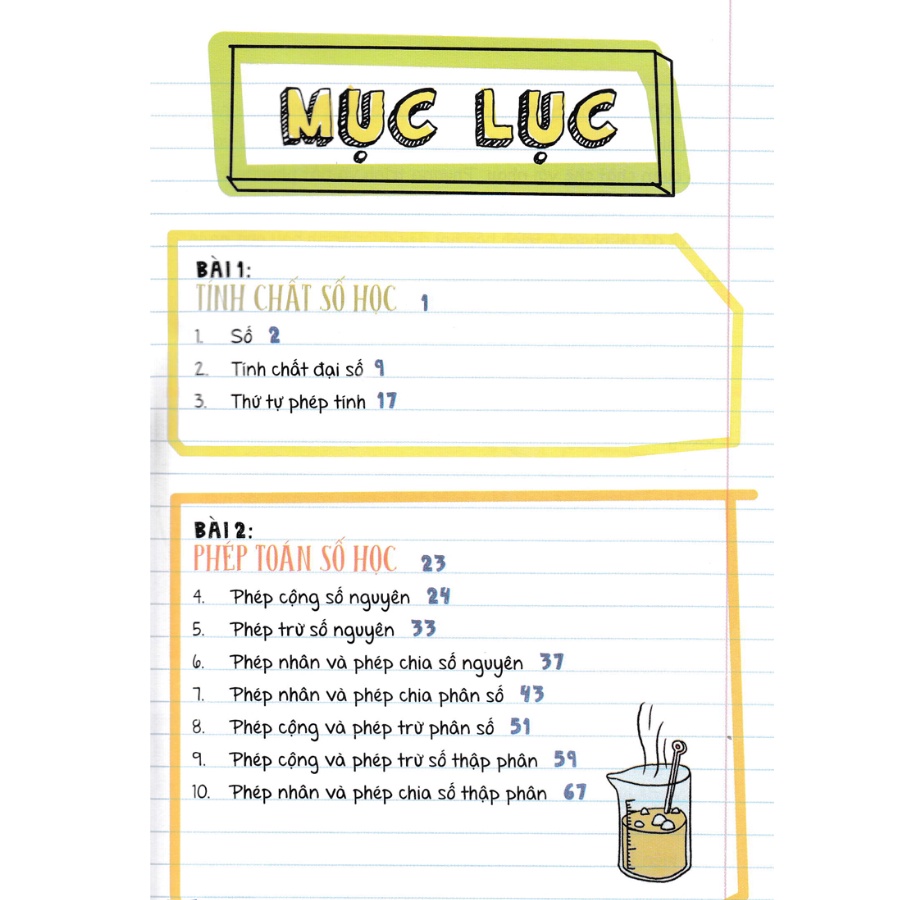 MỤC LỤC
BÀI 1:
TÍNH CHẤT SỐ HỌC 1
1. Số 2
2. Tính chất đại số 9
3. Thứ tự phép tính 17
BÀI 2:
PHÉP TOÁN SỐ HỌC 23
4. Phép cộng số nguyên 24
5. Phép trừ số nguyên 33
6. Phép nhân và phép chia số nguyên 37
7. Phép nhân và phép chia phân số 43
8. Phép cộng và phép trừ phân số 51
9. Phép cộng và phép trừ số thập phân 59
10. Phép nhân và phép chia số thập phân 67